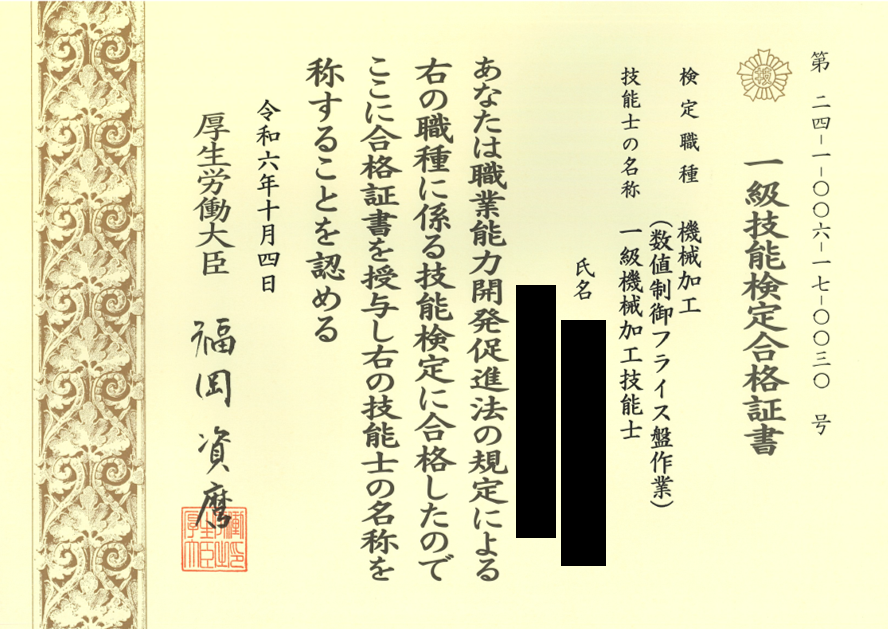 第 二四-一-〇〇六-一七-〇〇三〇 号
一級技能検定合格証書
検定職種 機械加工
(数値制御フライス盤作業)
技能士の名称 一級機械加工技能士
氏名
あなたは職業能力開発促進法の規定による
右の職種に係る技能検定に合格したので
ここに合格証書を授与し右の技能士の名称を
称することを認める
令和六年十月四日
厚生労働大臣 福岡資麿